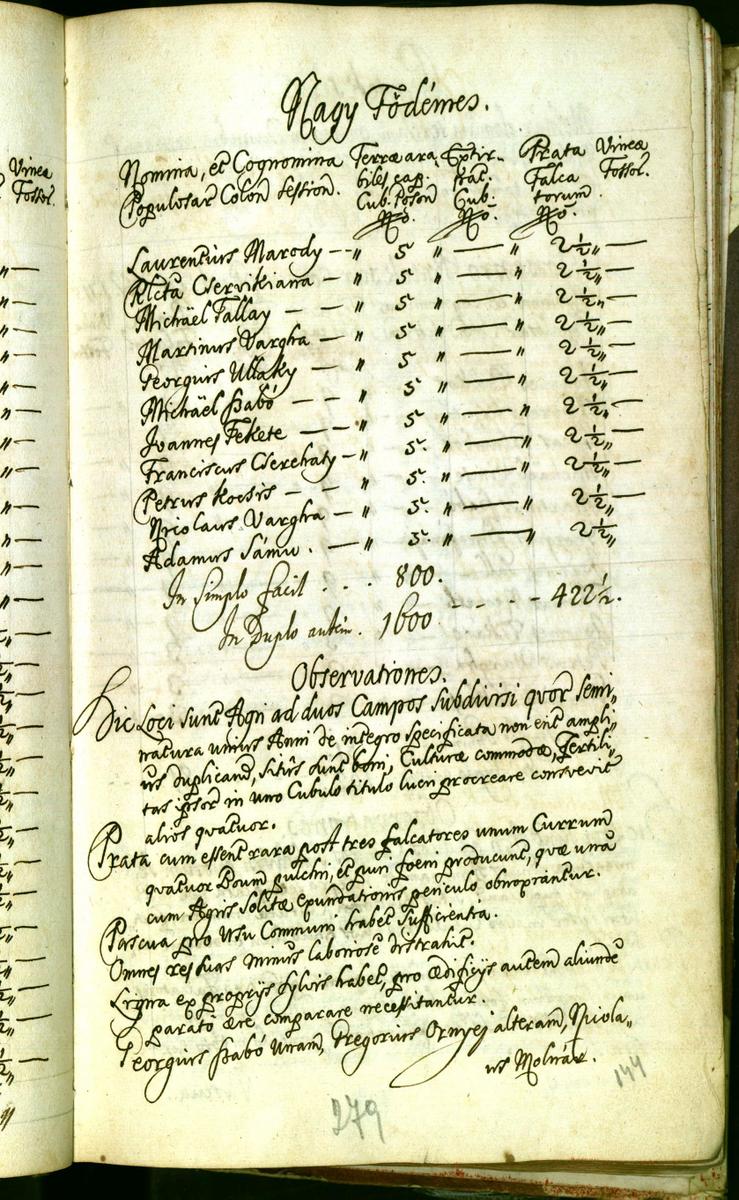 Vineæ
Fossor.
Nagy Födémes.
Nomina, et Cognomina Terræ ara Extir- Prata Vineæ
Populosar Colon Session. biles cap. pat. Falca Fossor.
Cub. Poson Cub. torum
No. No. No.
Laurentius Marody — " 5 " — " 2 1/2 " —
Relcta Cservikiana — " 5 " — " 2 1/2 " —
Michäel Tallay — — " 5 " — " 2 1/2 " —
Martinus Vargha — " 5 " — " 2 1/2 " —
Georgius Ullaky — " 5 " — " 2 1/2 " —
Michäel Szabó — — " 5 " — " 2 1/2 " —
Joannes Fekete — — " 5 " — " 2 1/2 " —
Franciscus Cserehaty — " 5 " — " 2 1/2 " —
Petrus Kocsis — — " 5 " — " 2 1/2 " —
Nicolaus Vargha — " 5 " — " 2 1/2 " —
Adamus Sámu. — " 5 " — " 2 1/2 "
In Simplo facit . . . 800. - - - - 422 1/2.
In Duplo autem. 1600
Observationes.
Hic Loci sunt Agri ad duos Campos subdivisi quor Semi„
natura unius Anni de integro specificata non erit ampli„
us duplicand, sitûs sunt boni, Culturæ commodæ, Fertili„
tas ipsor in uno Cubulo titulo lucri procreare consvevit
alios quatuor.
Prata cum essent rara post tres falcatores unum Currum
quatuor Boum pulchri, et puri foeni producunt, quæ unâ
cum Agris solitæ exundationis periculo obnoxiantur.
Pascua pro Usu Communi habet Sufficientia.
Omnes res suas minus laboriose distrahit.
Ligna ex proprijs sylvis habet, pro ædificijs autem aliunde
parato ære comparare necessitantur.
Georgius Szabó Unam, Gregorius Ornyej alteram, Nicola„
us Molnár.
144
279